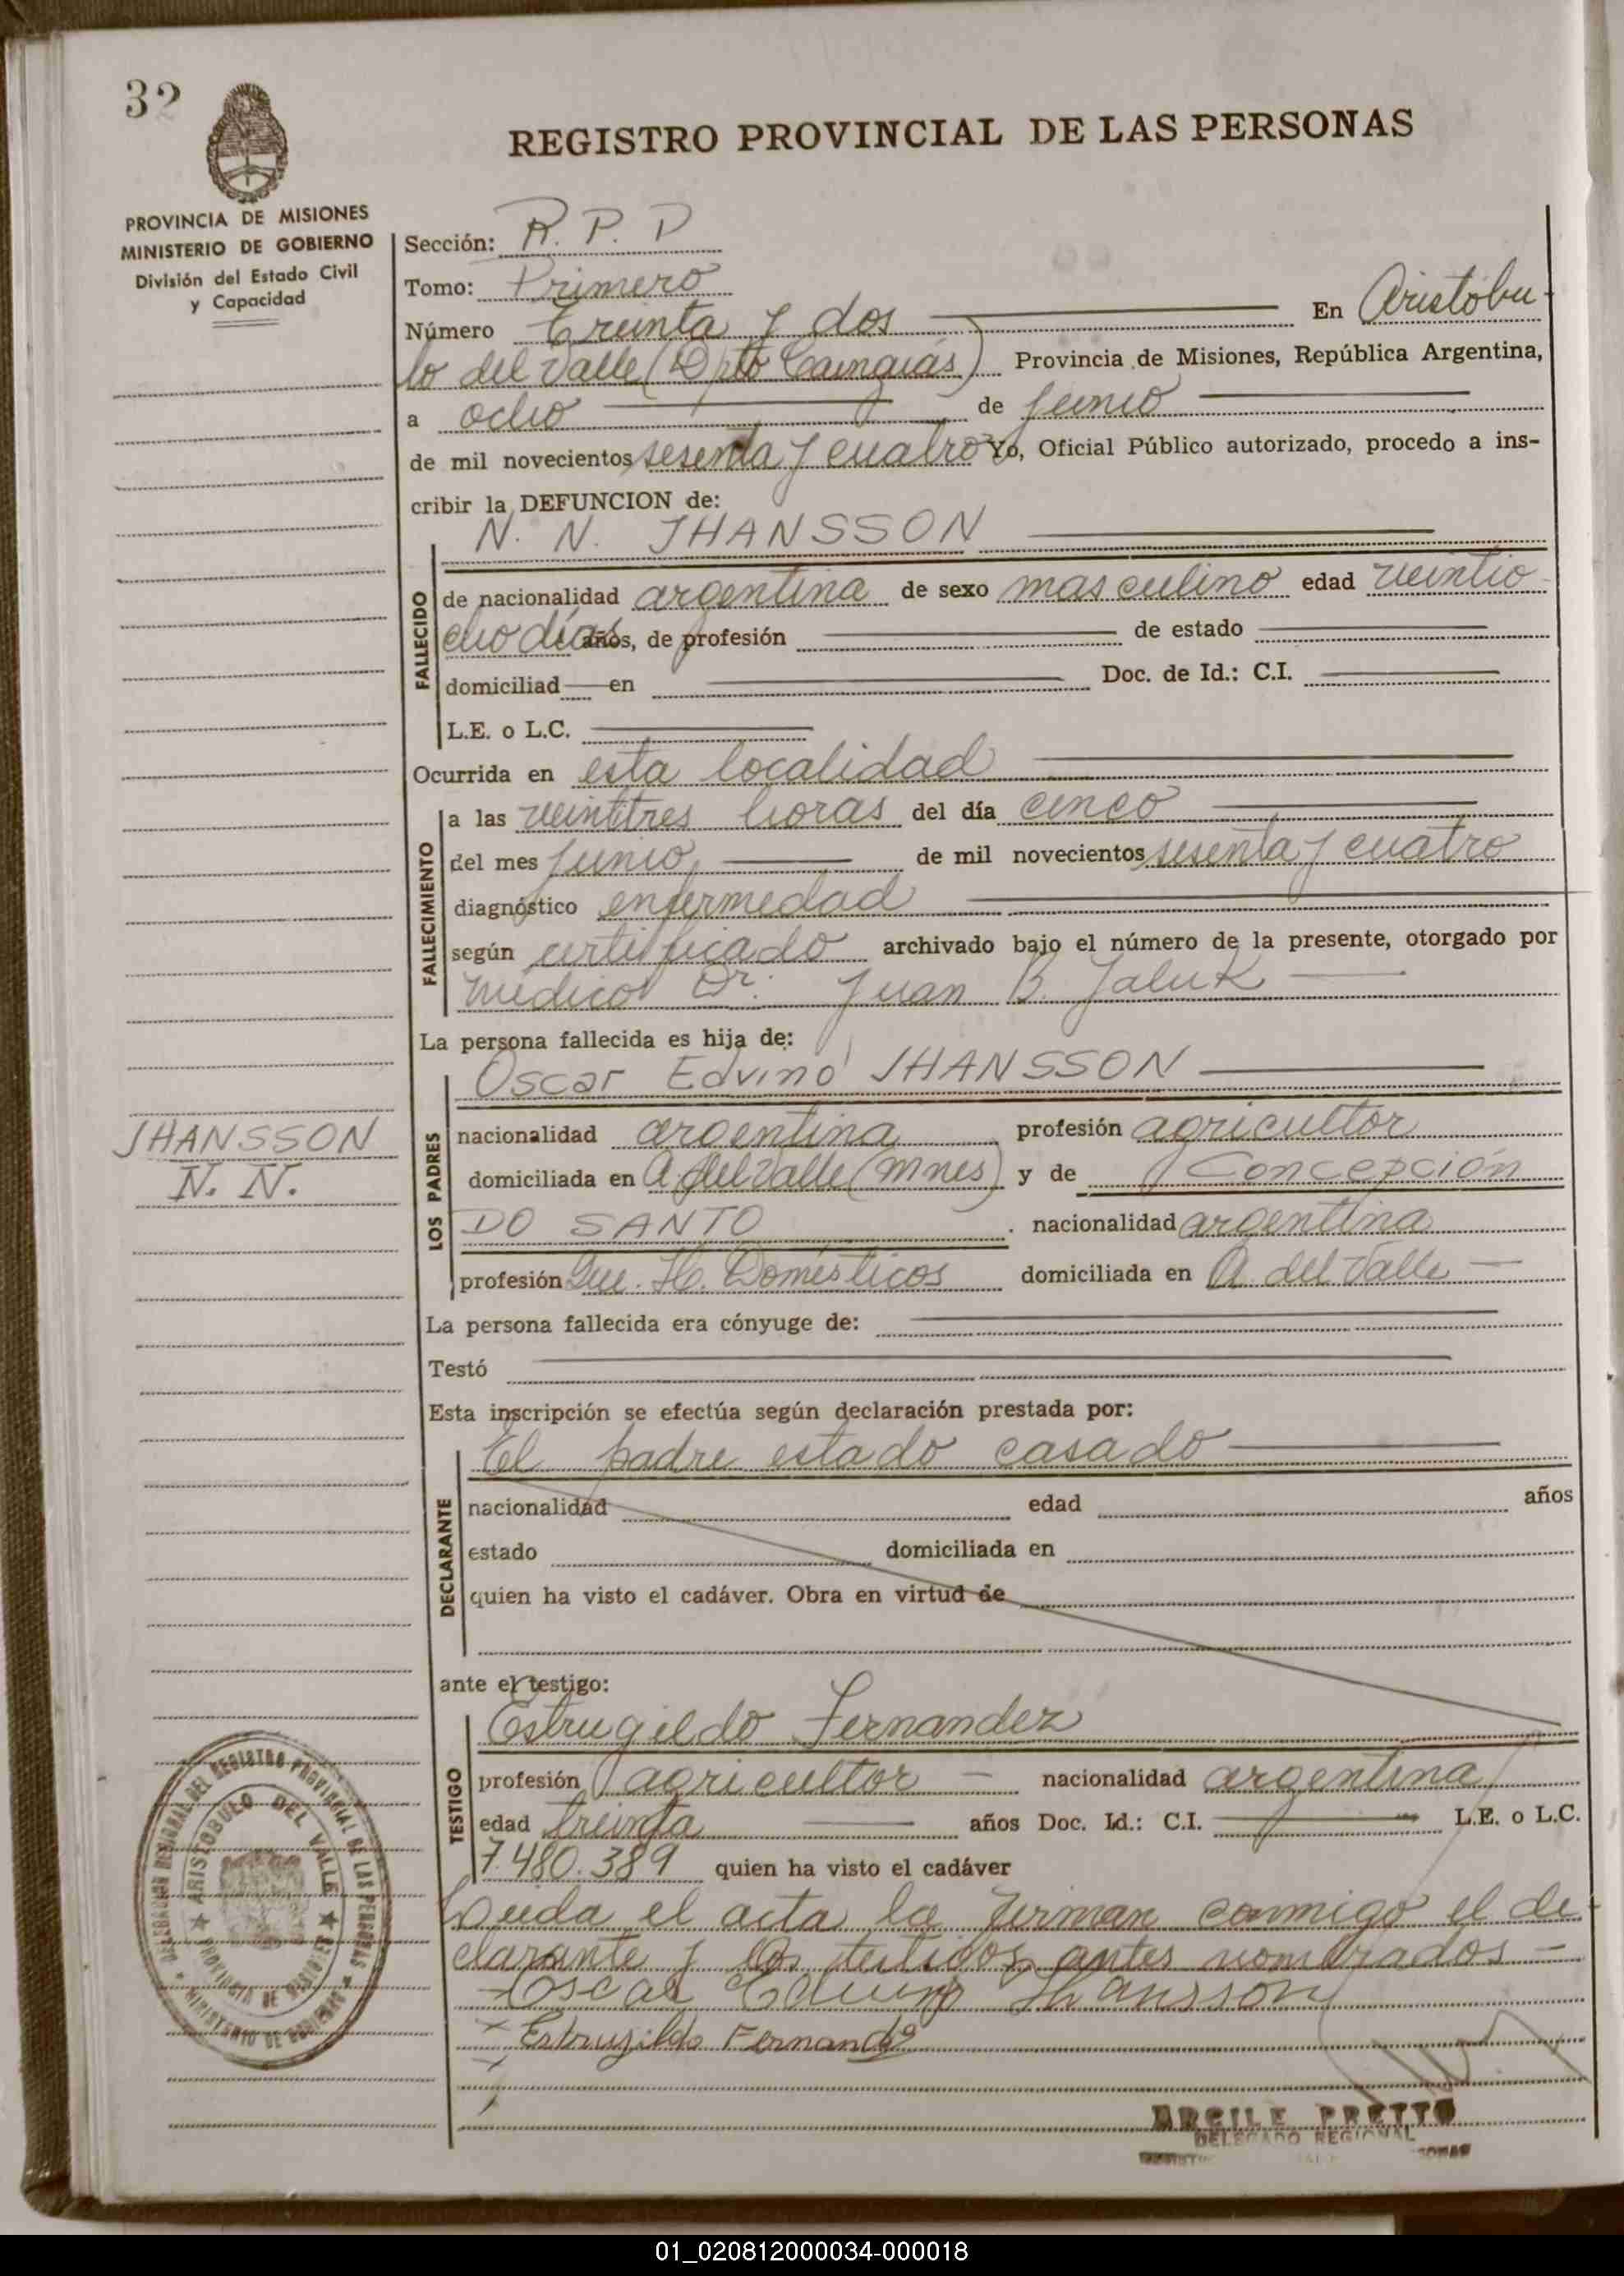 32
REGISTRO PROVINCIAL DE LAS PERSONAS
PROVINCIA DE MISIONES
MINISTERIO DE GOBIERNO
División del Estado Civil
y Capacidad
Sección: R. P. P
Tomo: Primero
Número Treinta y dos En Aristóbu-
lo del Valle (Dpto Cainguás) Provincia de Misiones, República Argentina,
a ocho de junio
de mil novecientos sesenta y cuatro Yo, Oficial Público autorizado, procedo a ins-
cribir la DEFUNCION de:
N. N. JHANSSON
FALLECIDO
de nacionalidad argentina de sexo masculino edad veintio-
cho días años, de profesión de estado
domiciliad en Doc. de Id.: C.I.
L.E. o L.C.
Ocurrida en esta localidad
FALLECIMIENTO
a las veintitres horas del día cinco
del mes junio de mil novecientos sesenta y cuatro
diagnóstico enfermedad
según certificado archivado bajo el número de la presente, otorgado por
médico Dr. Juan B. Jaluk
La persona fallecida es hija de:
LOS PADRES
Oscar Edvino JHANSSON
nacionalidad argentina profesión agricultor
domiciliada en A. del Valle (Mnes) y de Concepción
DO SANTO . nacionalidad argentina
profesión Que. H. Domésticos domiciliada en A. del Valle
JHANSSON
N. N.
La persona fallecida era cónyuge de:
Testó
Esta inscripción se efectúa según declaración prestada por:
DECLARANTE
El padre estado casado
nacionalidad edad años
estado domiciliada en
quien ha visto el cadáver. Obra en virtud de
ante el testigo:
TESTIGO
Estrugildo Fernandez
profesión agricultor nacionalidad argentina
edad treinta años Doc. Id.: C.I. L.E. o L.C.
7.480.389 quien ha visto el cadáver
Leida el acta la firman conmigo el de-
clarante y los testigos antes nombrados
Oscar Edvino Jhansson
Estrugildo Fernande
DELEGACION REGIONAL DEL REGISTRO PROVINCIAL DE LAS PERSONAS
ARISTOBULO DEL VALLE
PROVINCIA DE MISIONES
MINISTERIO DE GOBIERNO
ARGILE PRETTO
DELEGADO REGIONAL
01_020812000034-000018